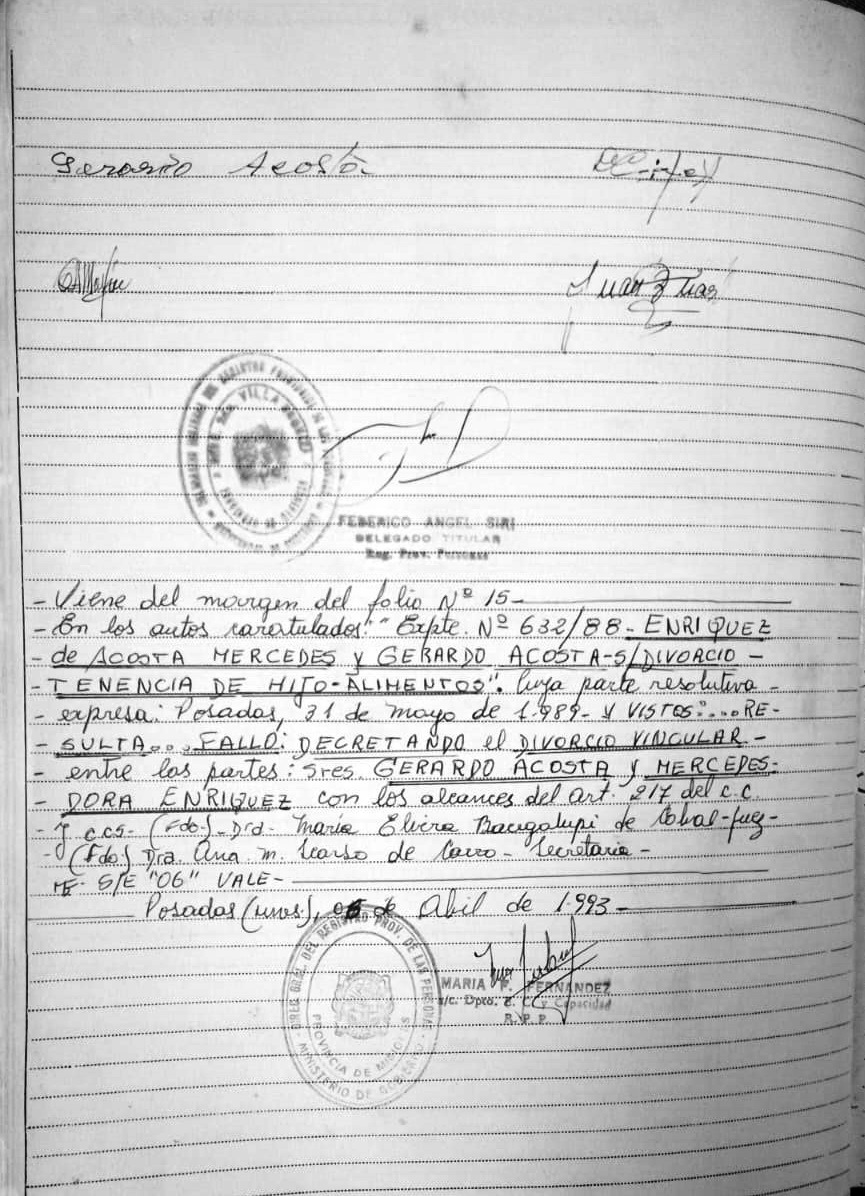 Gerardo Acosta
Juan
FEDERICO ANGEL SIRI
DELEGADO TITULAR
Reg. Prov. Personas
VILLA
- Viene del margen del folio Nº 15-
- En los autos caratulados: "Expte. Nº 632/88- ENRIQUEZ
- de ACOSTA MERCEDES y GERARDO ACOSTA-S/DIVORCIO -
- TENENCIA DE HIJO-ALIMENTOS". Cuya parte resolutiva -
- expresa: Posadas, 31 de mayo de 1.989- Y VISTOS:...RE-
- SULTA... FALLO: DECRETANDO el DIVORCIO VINCULAR -
- entre las partes: Sres. GERARDO ACOSTA y MERCEDES-
- DORA ENRIQUEZ con los alcances del art. 217 del c.c.
- y ccs- (Fdo.)- Dra- María Elvira Bacigalupi de -Juez-
- (Fdo.) Dra. Ana M. de - Secretaria -
S/E "06" VALE-
Posadas (Mnes.), 06 de Abil de 1.993-
DIREC. GRAL. DEL REGISTRO PROV. DE LAS PERSONAS
PROVINCIA DE MISIONES
MINISTERIO DE GOBIERNO
MARIA F. FERNANDEZ
a/c. Dpto. E. C. y Capacidad
R. P. P.